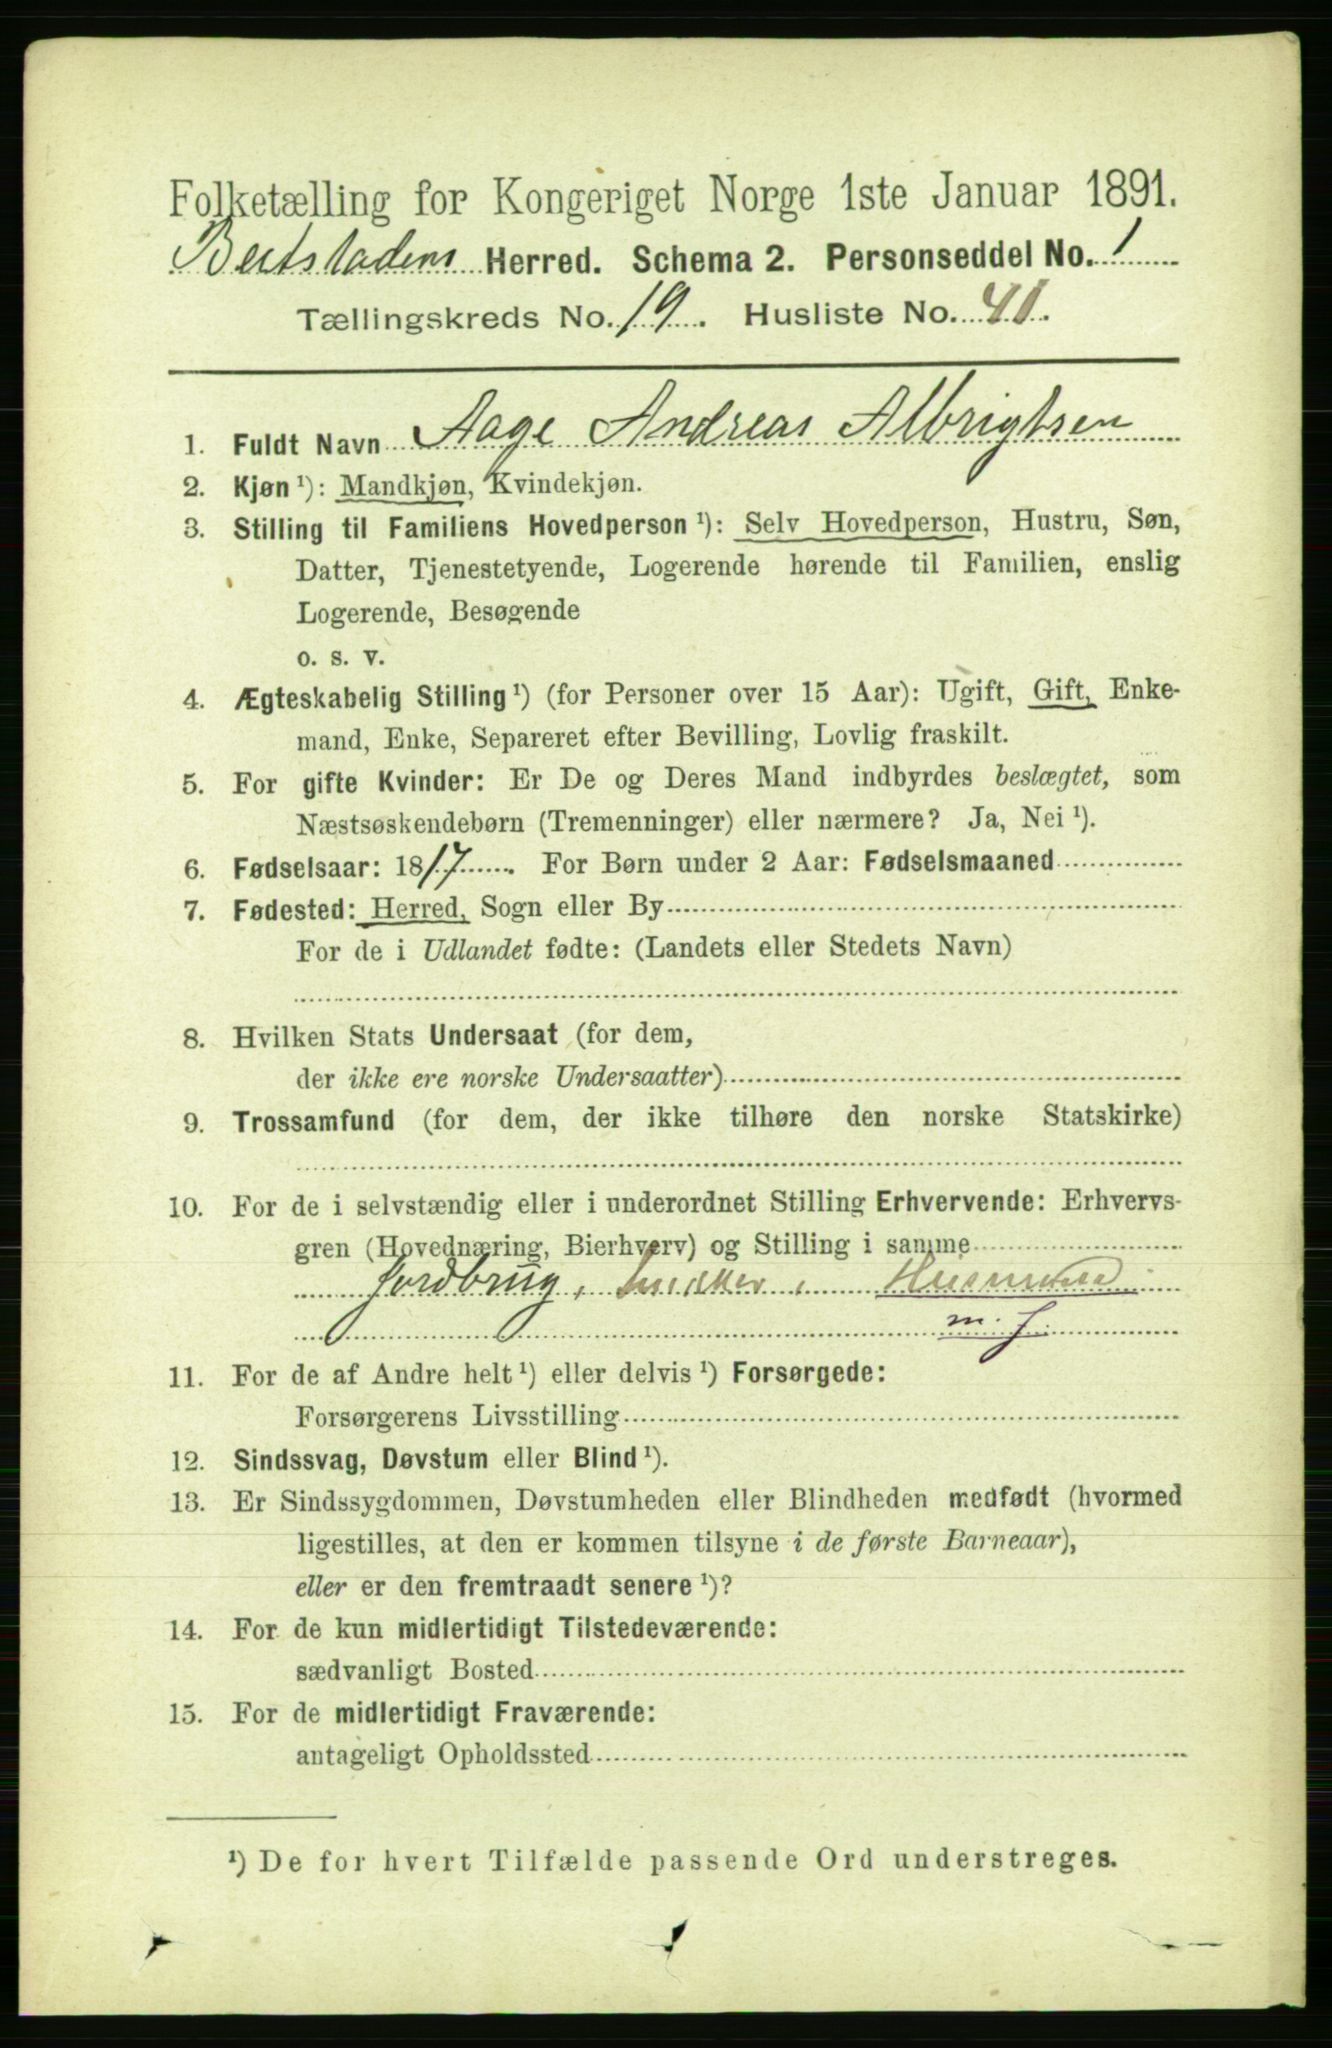 Folketælling for Kongeriget Norge 1ste Januar 1891.
Beitstadens Herred. Schema 2. Personseddel No. 1
Tællingskreds No. 19. Husliste No. 41.
1. Fuldt Navn Aage Andreas Albrigtsen
2. Kjøn ¹): Mandkjøn, Kvindekjøn.
3. Stilling til Familiens Hovedperson ¹): Selv Hovedperson, Hustru, Søn,
Datter, Tjenestetyende, Logerende hørende til Familien, enslig
Logerende, Besøgende
o. s. v.
4. Ægteskabelig Stilling ¹) (for Personer over 15 Aar): Ugift, Gift, Enke-
mand, Enke, Separeret efter Bevilling, Lovlig fraskilt.
5. For gifte Kvinder: Er De og Deres Mand indbyrdes beslægtet, som
Næstsøskendebørn (Tremenninger) eller nærmere? Ja, Nei ¹).
6. Fødselsaar: 1817. For Børn under 2 Aar: Fødselsmaaned
7. Fødested: Herred, Sogn eller By
For de i Udlandet fødte: (Landets eller Stedets Navn)
8. Hvilken Stats Undersaat (for dem,
der ikke ere norske Undersaatter)
9. Trossamfund (for dem, der ikke tilhøre den norske Statskirke)
10. For de i selvstændig eller i underordnet Stilling Erhvervende: Erhvervs-
gren (Hovednæring, Bierhverv) og Stilling i samme
Jordbrug, Snekker, Husmand
m. j.
11. For de af Andre helt ¹) eller delvis ¹) Forsørgede:
Forsørgerens Livsstilling
12. Sindssvag, Døvstum eller Blind ¹).
13. Er Sindssygdommen, Døvstumheden eller Blindheden medfødt (hvormed
ligestilles, at den er kommen tilsyne i de første Barneaar),
eller er den fremtraadt senere ¹)?
14. For de kun midlertidigt Tilstedeværende:
sædvanligt Bosted
15. For de midlertidigt Fraværende:
antageligt Opholdssted
¹) De for hvert Tilfælde passende Ord understreges.